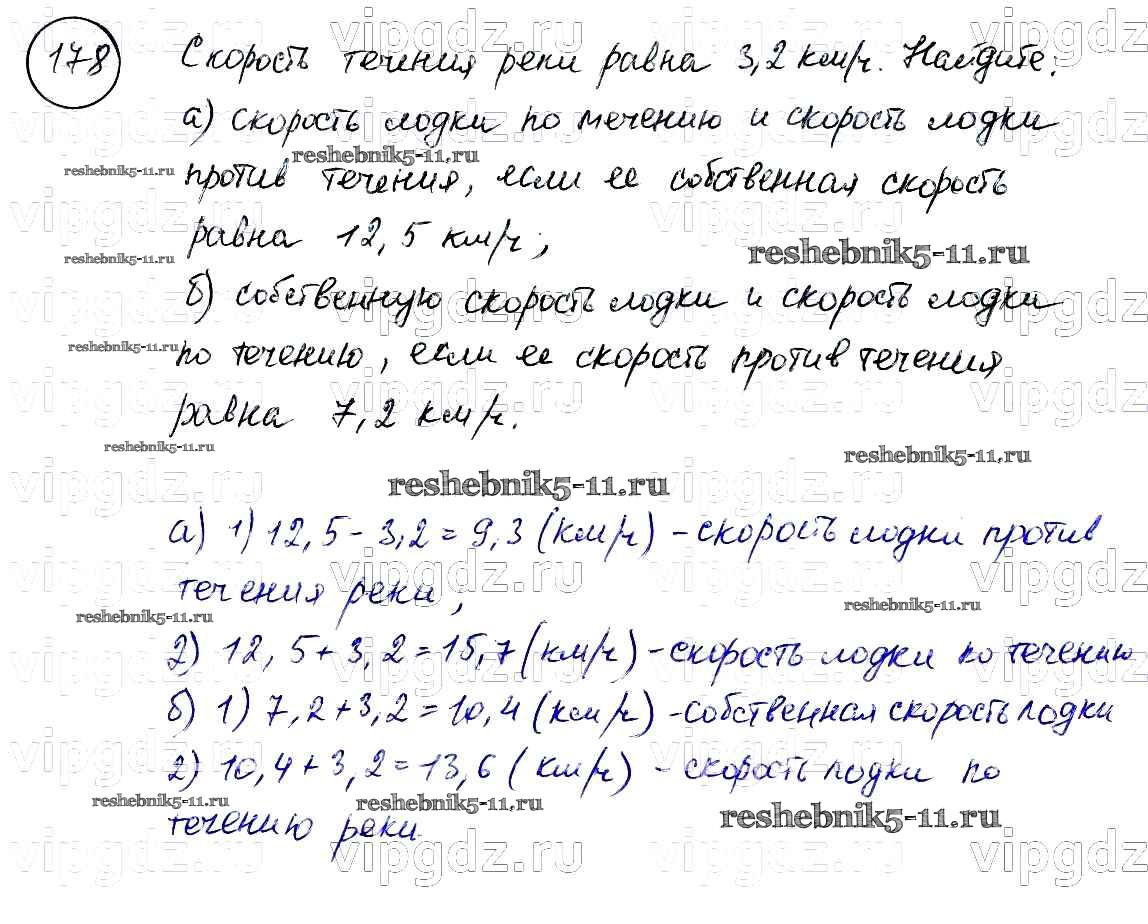 178
Скорость течения реки равна 3,2 км/ч. Найдите:
а) скорость лодки по течению и скорость лодки
против течения, если ее собственная скорость
равна 12,5 км/ч;
б) собственную скорость лодки и скорость лодки
по течению, если ее скорость против течения
равна 7,2 км/ч.
а) 1) 12,5 - 3,2 = 9,3 (км/ч) - скорость лодки против
течения реки,
2) 12,5 + 3,2 = 15,7 (км/ч) - скорость лодки по течению
б) 1) 7,2 + 3,2 = 10,4 (км/ч) - собственная скорость лодки
2) 10,4 + 3,2 = 13,6 (км/ч) - скорость лодки по
течению реки
reshebnik5-11.ru
vipgdz.ru